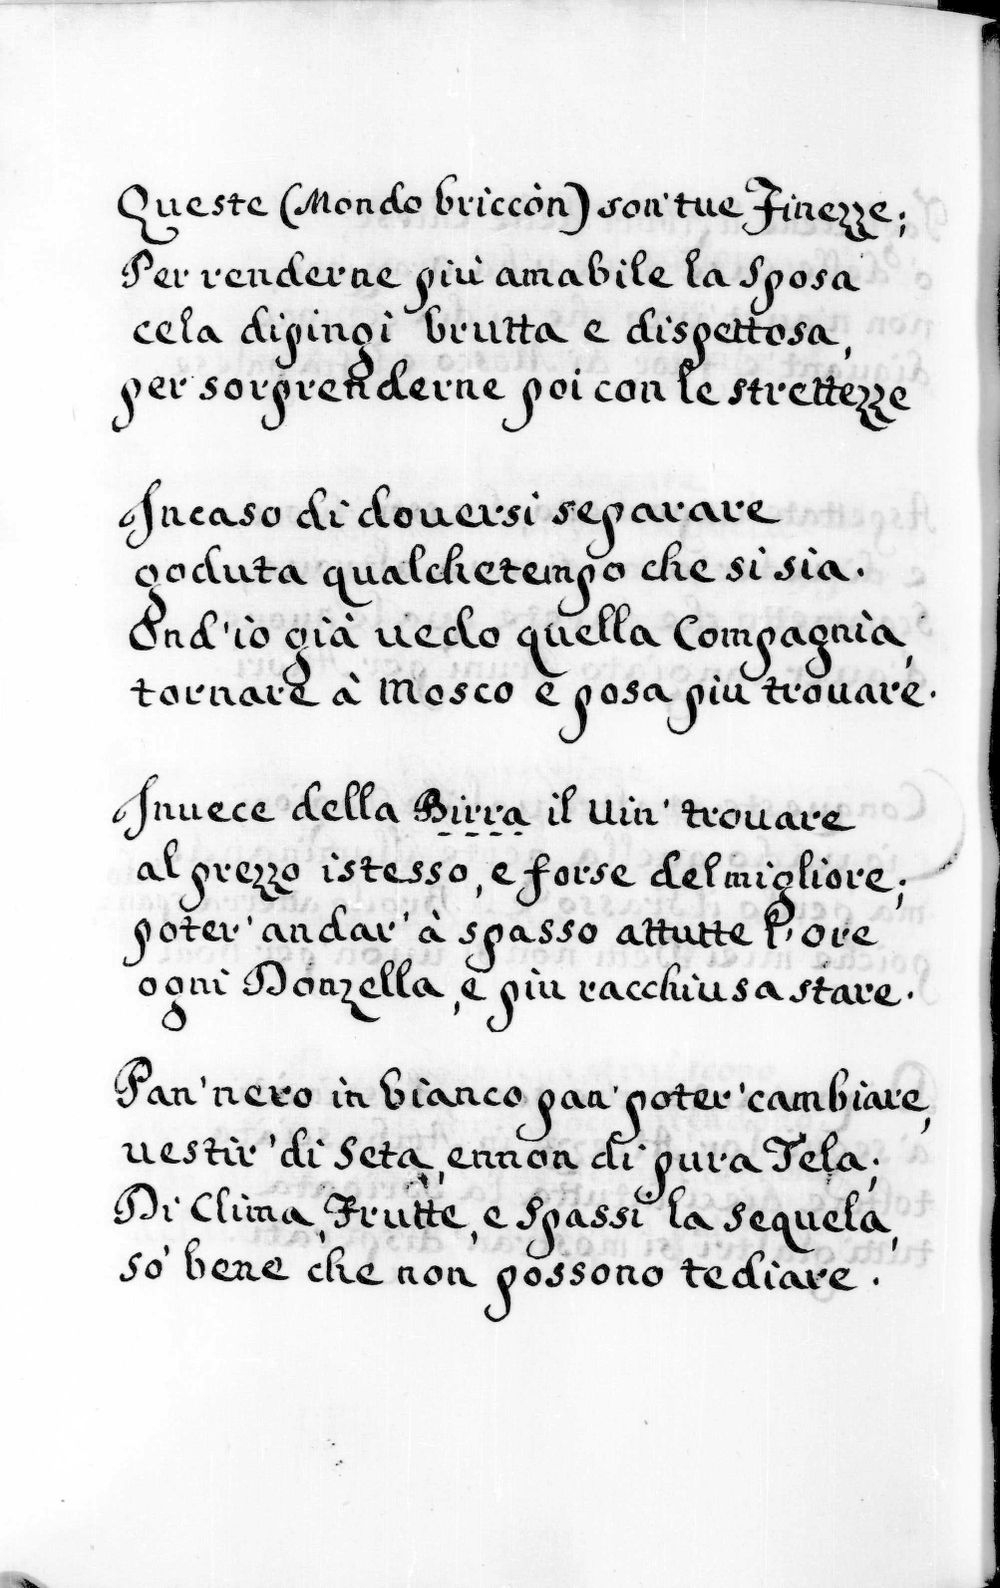 Queste (Mondo briccòn) son' tue Finezze;
Per renderne più amabile la Sposa
cela dipingi brutta e dispettosa,
per sorprenderne poi con le strettezze
Incaso di douersi separare
goduta qualchetempo che si sia.
Ond'io già uedo quella Compagnia,
tornare à Mosco e posa piu trouare.
Inuece della Birra il Uin' trouare
al prezzo istesso, e forse del migliore;
poter' andar' à spasso attutte l'ore
ogni Donzella, e piu racchiusa stare.
Pan' nero in bianco pan' poter' cambiare,
uestir' di Seta, ennon di pura Tela;
Di Clima, Frutte, e Spassi la sequela,
so' bene che non possono tediare.